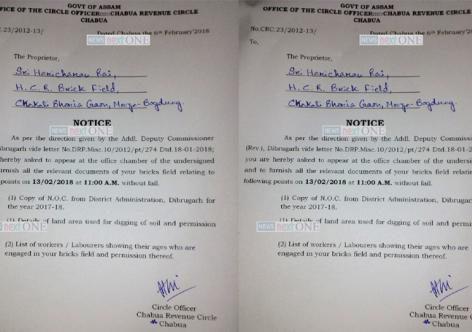 GOVT OF ASSAM
FFICE OF THE CIRCLE OFFICER::::CHABUA REVENUE CIRCLE
CHABUA
.23/2012-13/ Dated Chabua the 6th February'2018
NEWS next ONE
The Proprietor,
Sri Haricharan Rai,
H.C.R. Brick Field,
NOTICE
NEWS next ONE
As per the direction given by the Addl. Deputy Commissioner
Dibrugarh vide letter No.DRP.Misc.10/2012/pt/274 Dtd.18-01-2018;
hereby asked to appear at the office chamber of the undersigned
furnish all the relevant documents of your bricks field relating to
points on 13/02/2018 at 11:00 A.M. without fail.
(1) Copy of N.O.C. from District Administration, Dibrugarh for
the year 2017-18.
(1) Details of land area used for digging of soil and permission
NEWS next ONE
(2) List of workers / Labourers showing their ages who are
engaged in your bricks field and permission thereof.
Circle Officer
Chabua Revenue Circle
Chabua
GOVT OF ASSAM
OFFICE OF THE CIRCLE OFFICER::::CHABUA REVENUE CIRCLE
CHABUA
No.CRC.23/2012-13/ Dated Chabua the 6th February'2018
NEWS next ONE
To,
The Proprietor,
Sri Haricharan Rai,
H.C.R. Brick Field,
NOTICE
NEWS next ONE
As per the direction given by the Addl. Deputy Commissioner
(Rev), Dibrugarh vide letter No.DRP.Misc.10/2012/pt/274 Dtd.18-01-2
you are hereby asked to appear at the office chamber of the unders
and to furnish all the relevant documents of your bricks field relat
following points on 13/02/2018 at 11:00 A.M. without fail.
(1) Copy of N.O.C. from District Administration, Dibrugar
the year 2017-18.
(1) Details of land area used for digging of soil and permis
NEWS next ONE
(2) List of workers / Labourers showing their ages who
engaged in your bricks field and permission thereof.
Circle Officer
Chabua Revenue C
Chabua